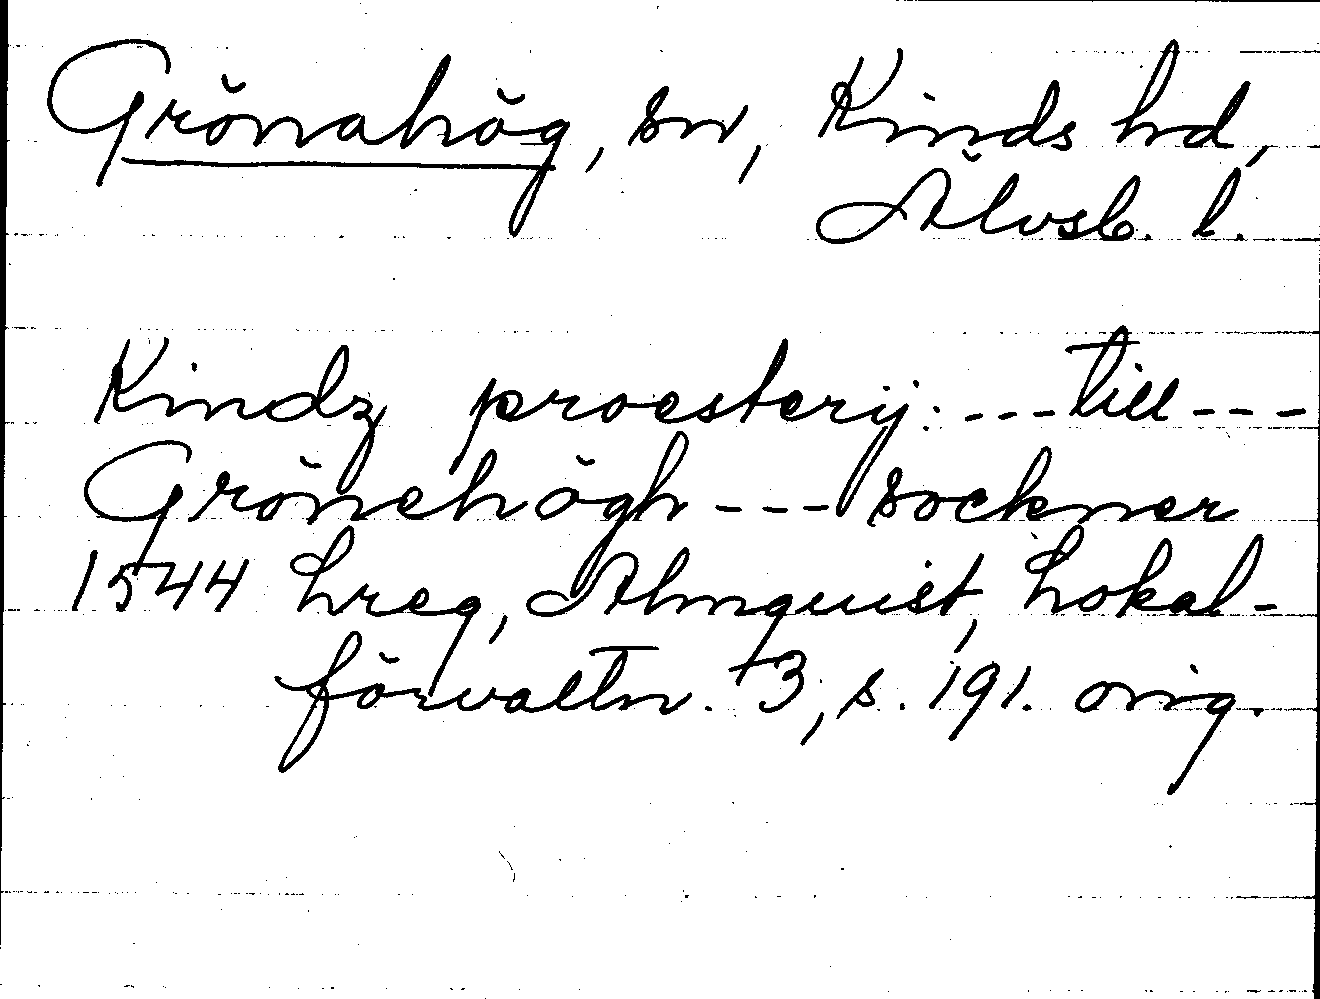 Grönahög, sn, Kinds hd,
Älvsb. l.
Kindz proesterij: --- till ---
Grönehögh --- sockner
1544 Lreg, Almquist, Lokal-
förvaltn. 3, s. 191. orig.